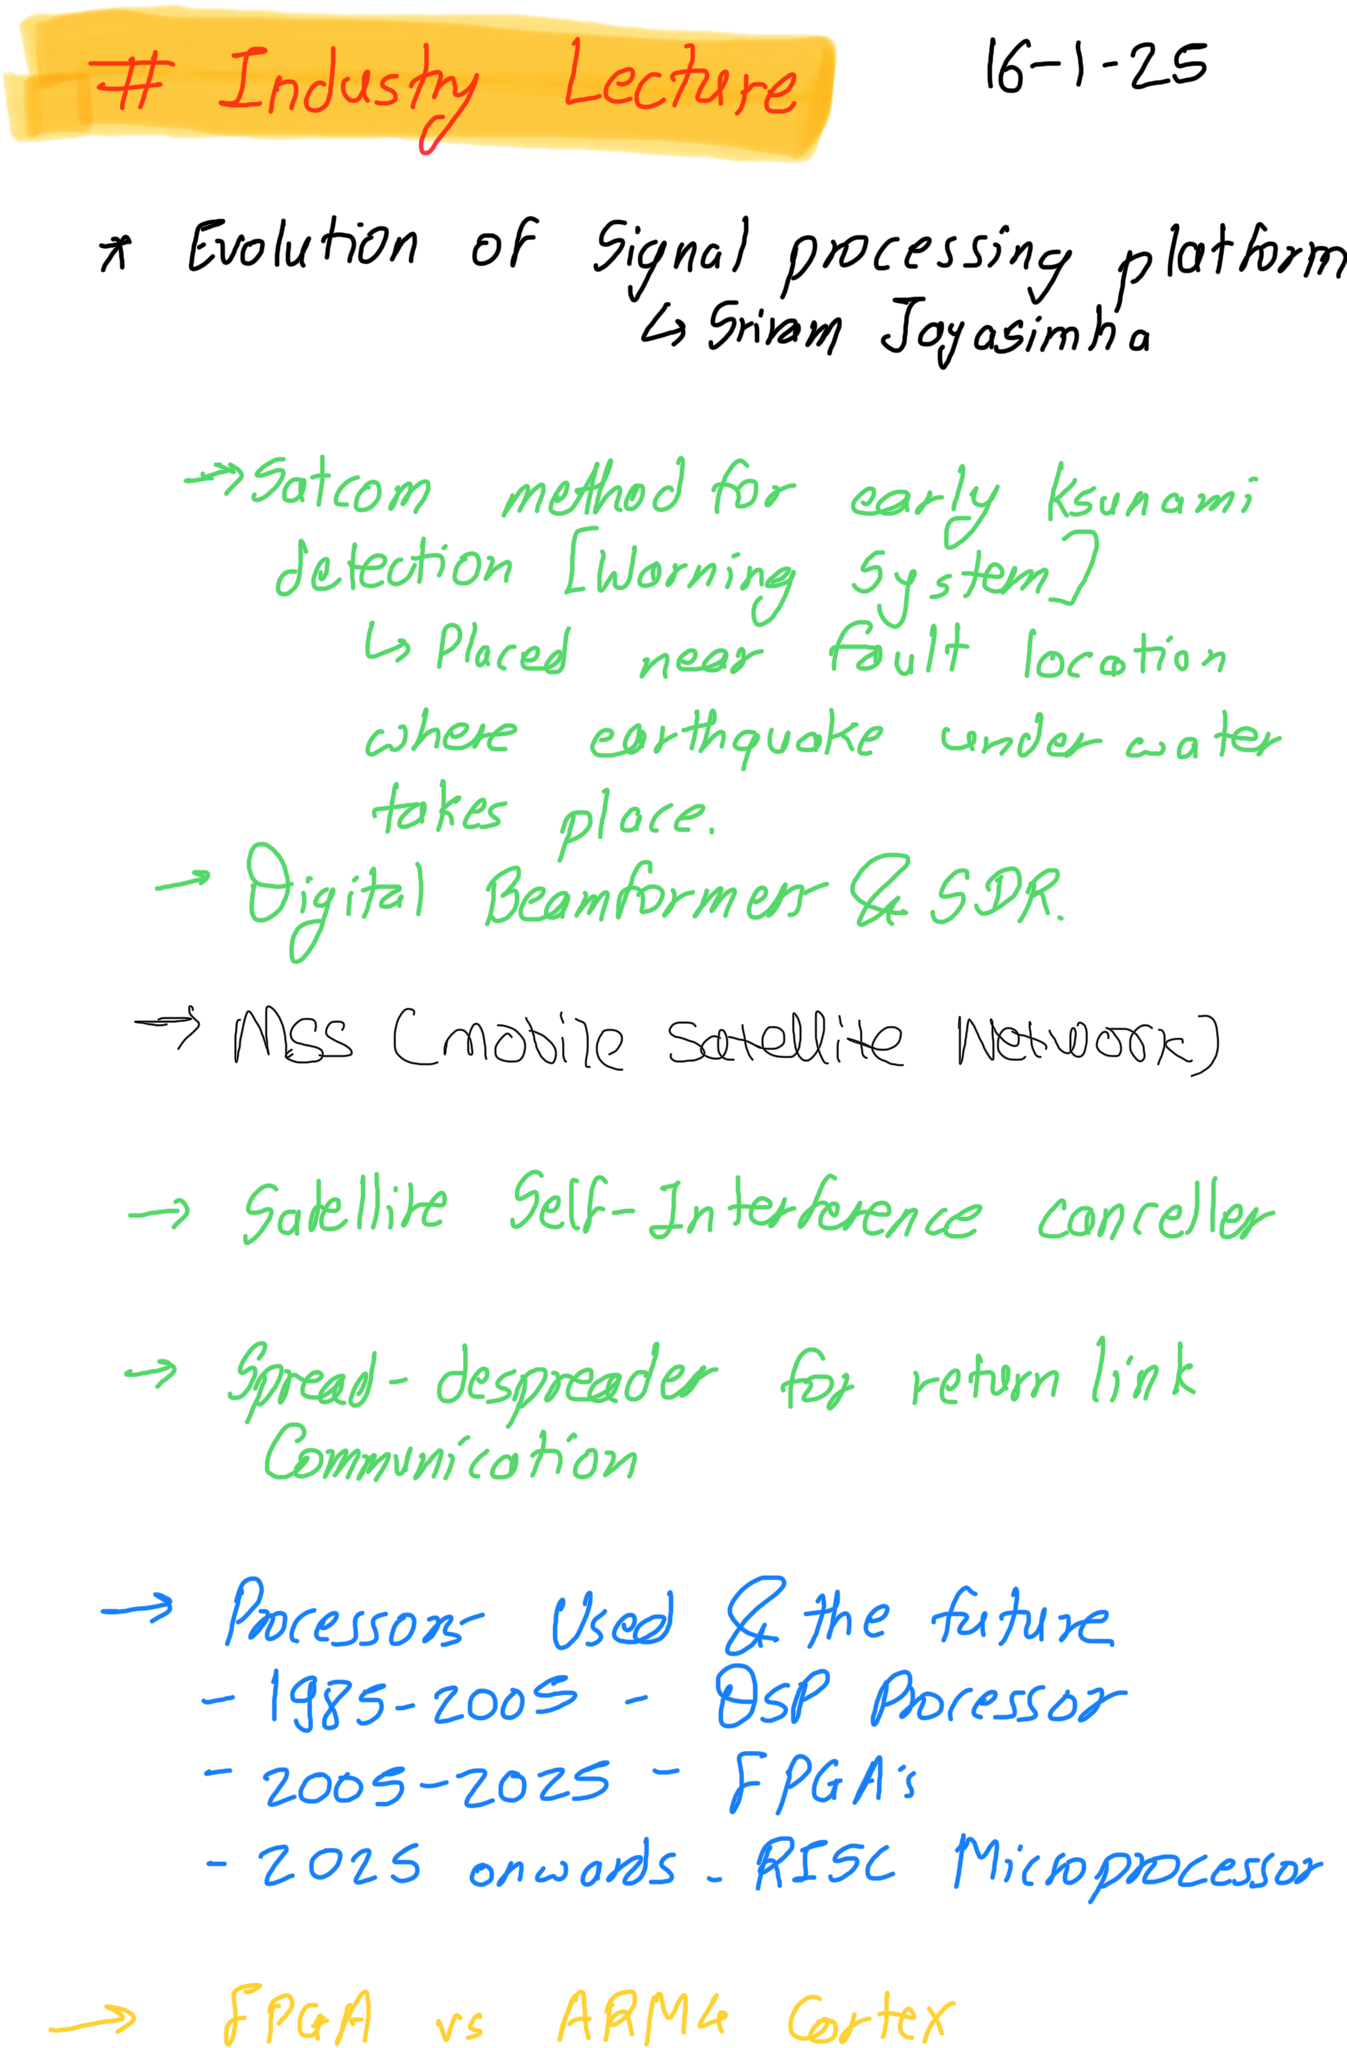 # Industry Lecture 16-1-25
* Evolution of Signal processing platform
↳ Sriram Jayasimha
→ Satcom method for early Ksunami
detection [Warning System]
↳ Placed near fault location
where earthquake under water
takes place.
→ Digital Beamformers & SDR.
→ MSS (Mobile Satellite Network)
→ Satellite Self-Interference canceller
→ Spread-despreader for return link
Communication
→ Processors Used & the future
- 1985-2005 - DSP Processor
- 2005-2025 - FPGA's
- 2025 onwards - RISC Microprocessor
→ FPGA vs ARM4 Cortex